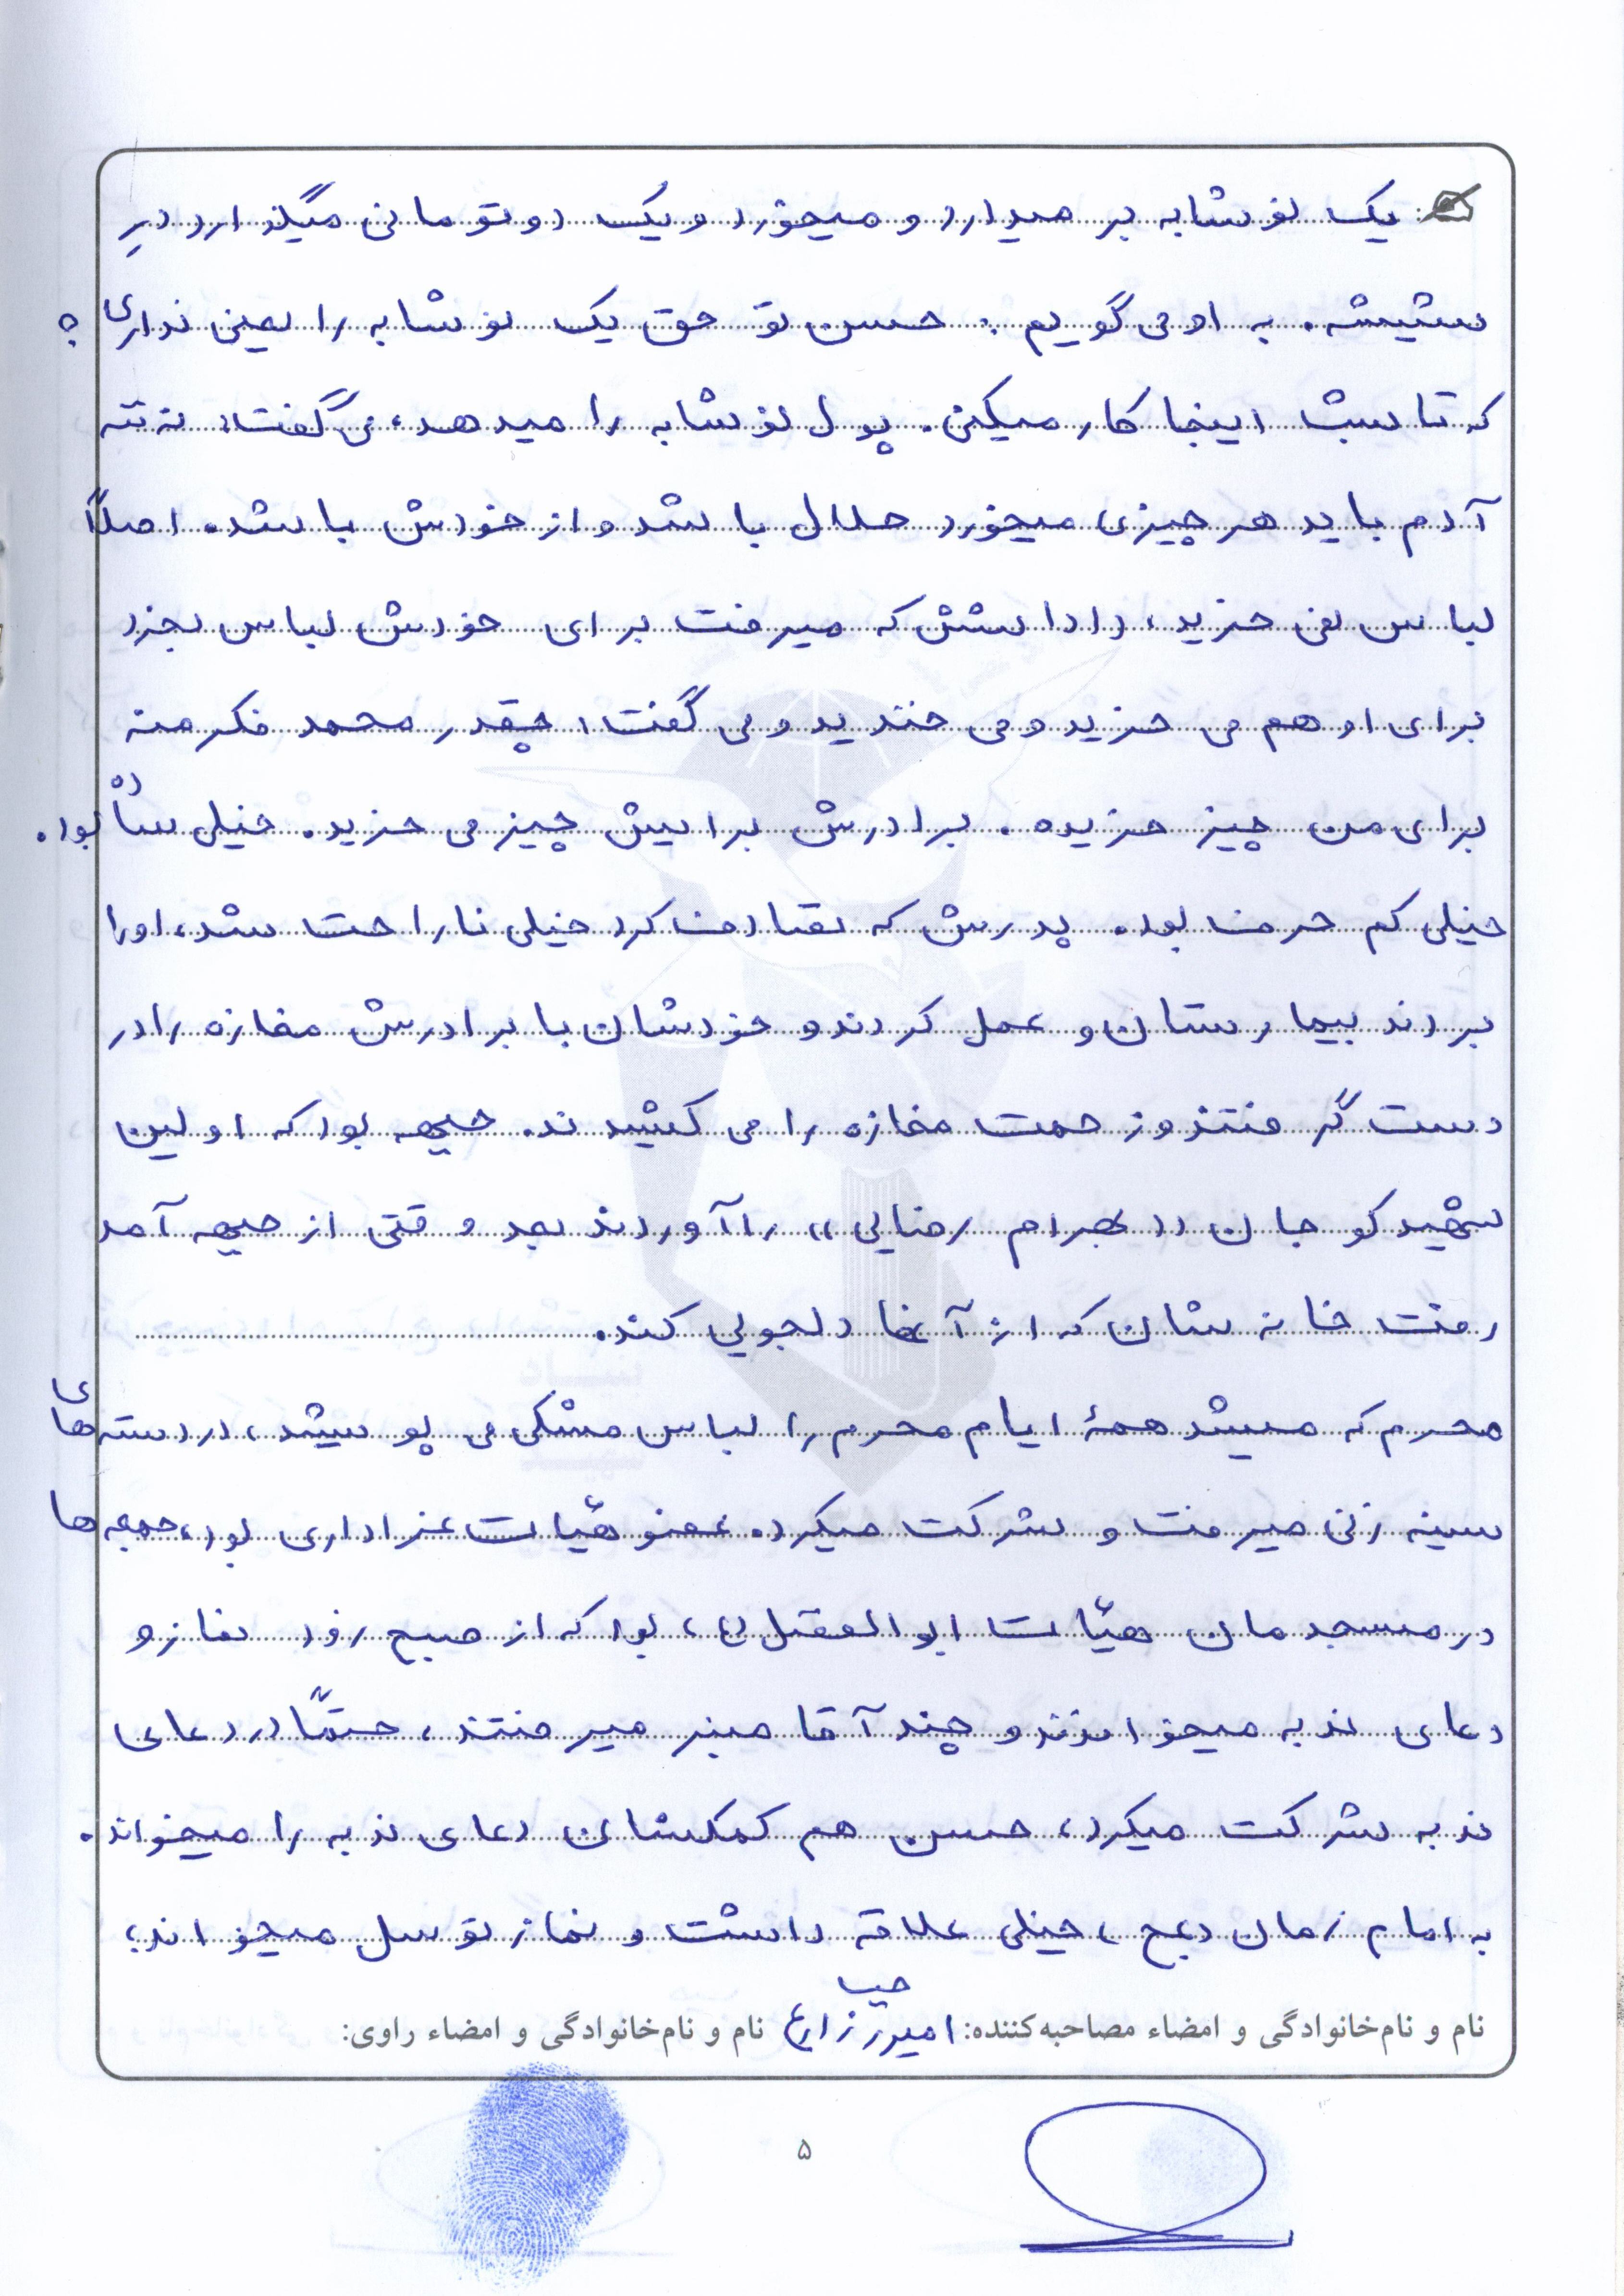 یک نوشابه بر میدارد و میخورد و یک دو تومانی میگذارد در
شیشه. به او می گویم: حسن تو حق یک نوشابه را یعنی نداری؟
که تا شب اینجا کار میکنی. پول نوشابه را میدهد، می گفت: نه ننه
آدم باید هر چیزی میخورد حلال باشد و از خودش باشد. اصلاً
لباس نمی خرید، داداشش که میرفت برای خودش لباس بخرد
برای او هم می خرید و می خندید و می گفت: چقدر محمد فکر منه
برای من چیز خریده. برادرش برایش چیز می خرید. خیلی ساده بود.
خیلی کم حرف بود. پدرش که تصادف کرد خیلی ناراحت شد، او را
بردند بیمارستان و عمل کردند و خودشان با برادرش مغازه را در
دست گرفتند و زحمت مغازه را می کشیدند. جبهه بود که اولین
شهید کوجان «بهرام رضایی» را آوردند بعد وقتی از جبهه آمد
رفت خانه شان که از آنها دلجویی کند.
محرم که میشد همهٔ ایام محرم را لباس مشکی می پوشید، در دسته های
سینه زنی میرفت و شرکت میکرد. عضو هیأت عزاداری بود، جمعه ها
در مسجدمان هیأت ابوالفضل (ع) بود که از صبح زود نماز و
دعای ندبه میخواندند و چند آقا منبر میرفتند، حتماً در دعای
ندبه شرکت میکرد، حسن هم کمکشان دعای ندبه را میخواند.
به امام زمان (عج) خیلی علاقه داشت و نماز توسل میخواند؛
نام و نام‌خانوادگی و امضاء مصاحبه‌کننده: امیر زارع نام و نام‌خانوادگی و امضاء راوی:
۵